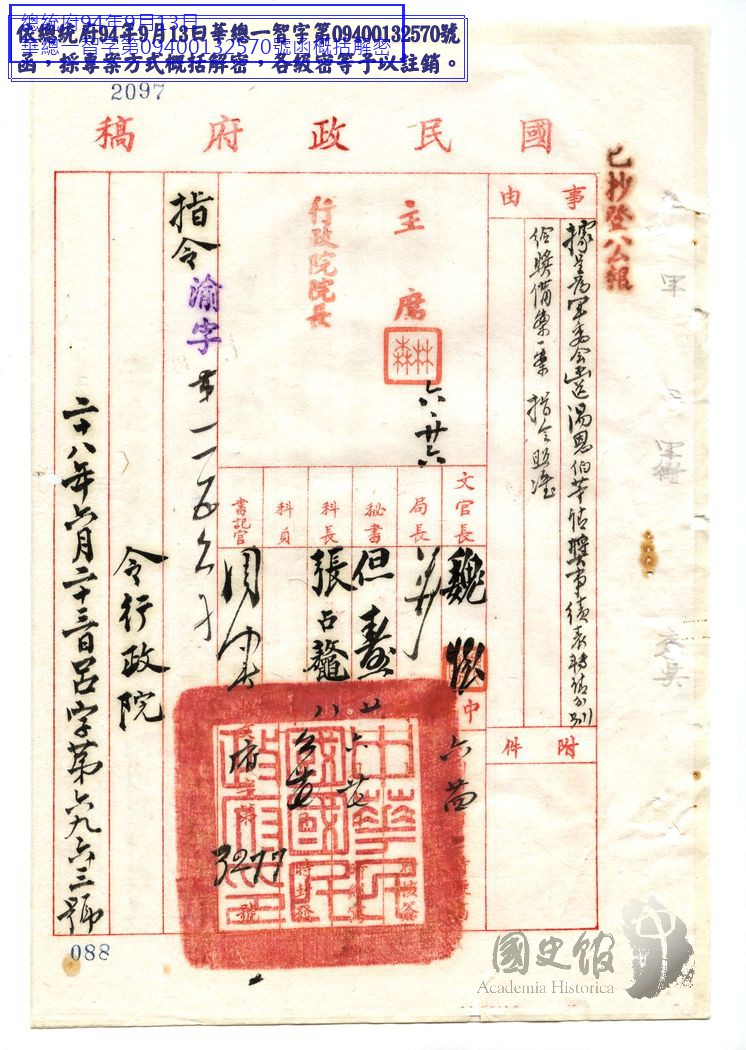 總統府94年9月13日
華總一智字第09400132570號函概括解密
依總統府94年9月13日華總一智字第09400132570號
函，採專案方式概括解密，各級密等予以註銷。
2097
國民政府稿
已抄登公報
事由
據呈為軍委會函送湯恩伯等請獎事績表轉請分別
給獎備案一案指令照准
附件
主席
六、廿六
行政院院長
文官長
魏懷
局長
秘書
但壽
科長
張占鰲
科員
書記官
府
3277
號
中華民國
指令
渝字
第一一五
令行政院
二十八年六月二十三日呂字第六九六三號
088
國史館
Academia Historica